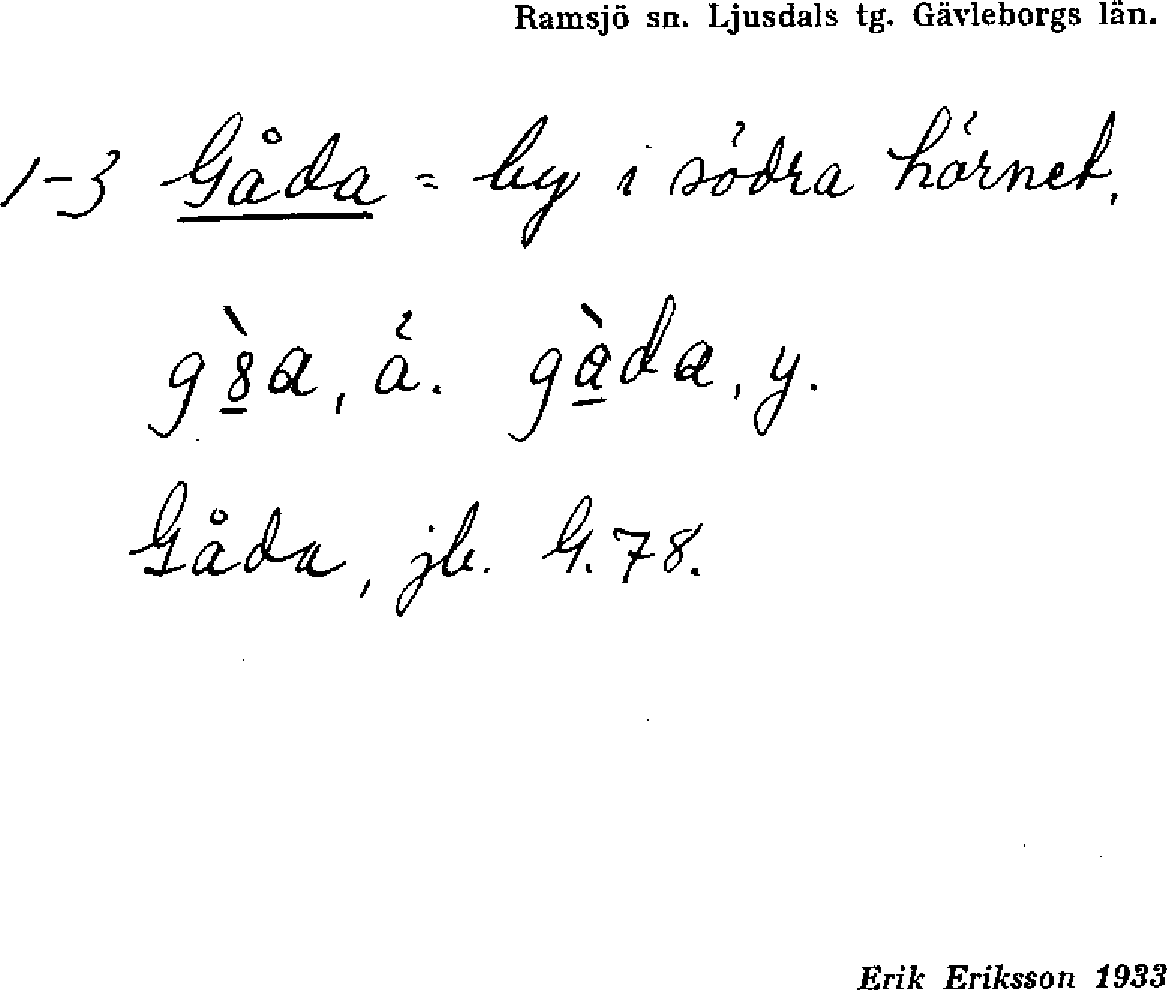 Ramsjö sn. Ljusdals tg. Gävleborgs län.
1-3 Gåda = by i södra hörnet,
g, ä. gàda, y.
Gåda, jb. G. 78.
Erik Eriksson 1933